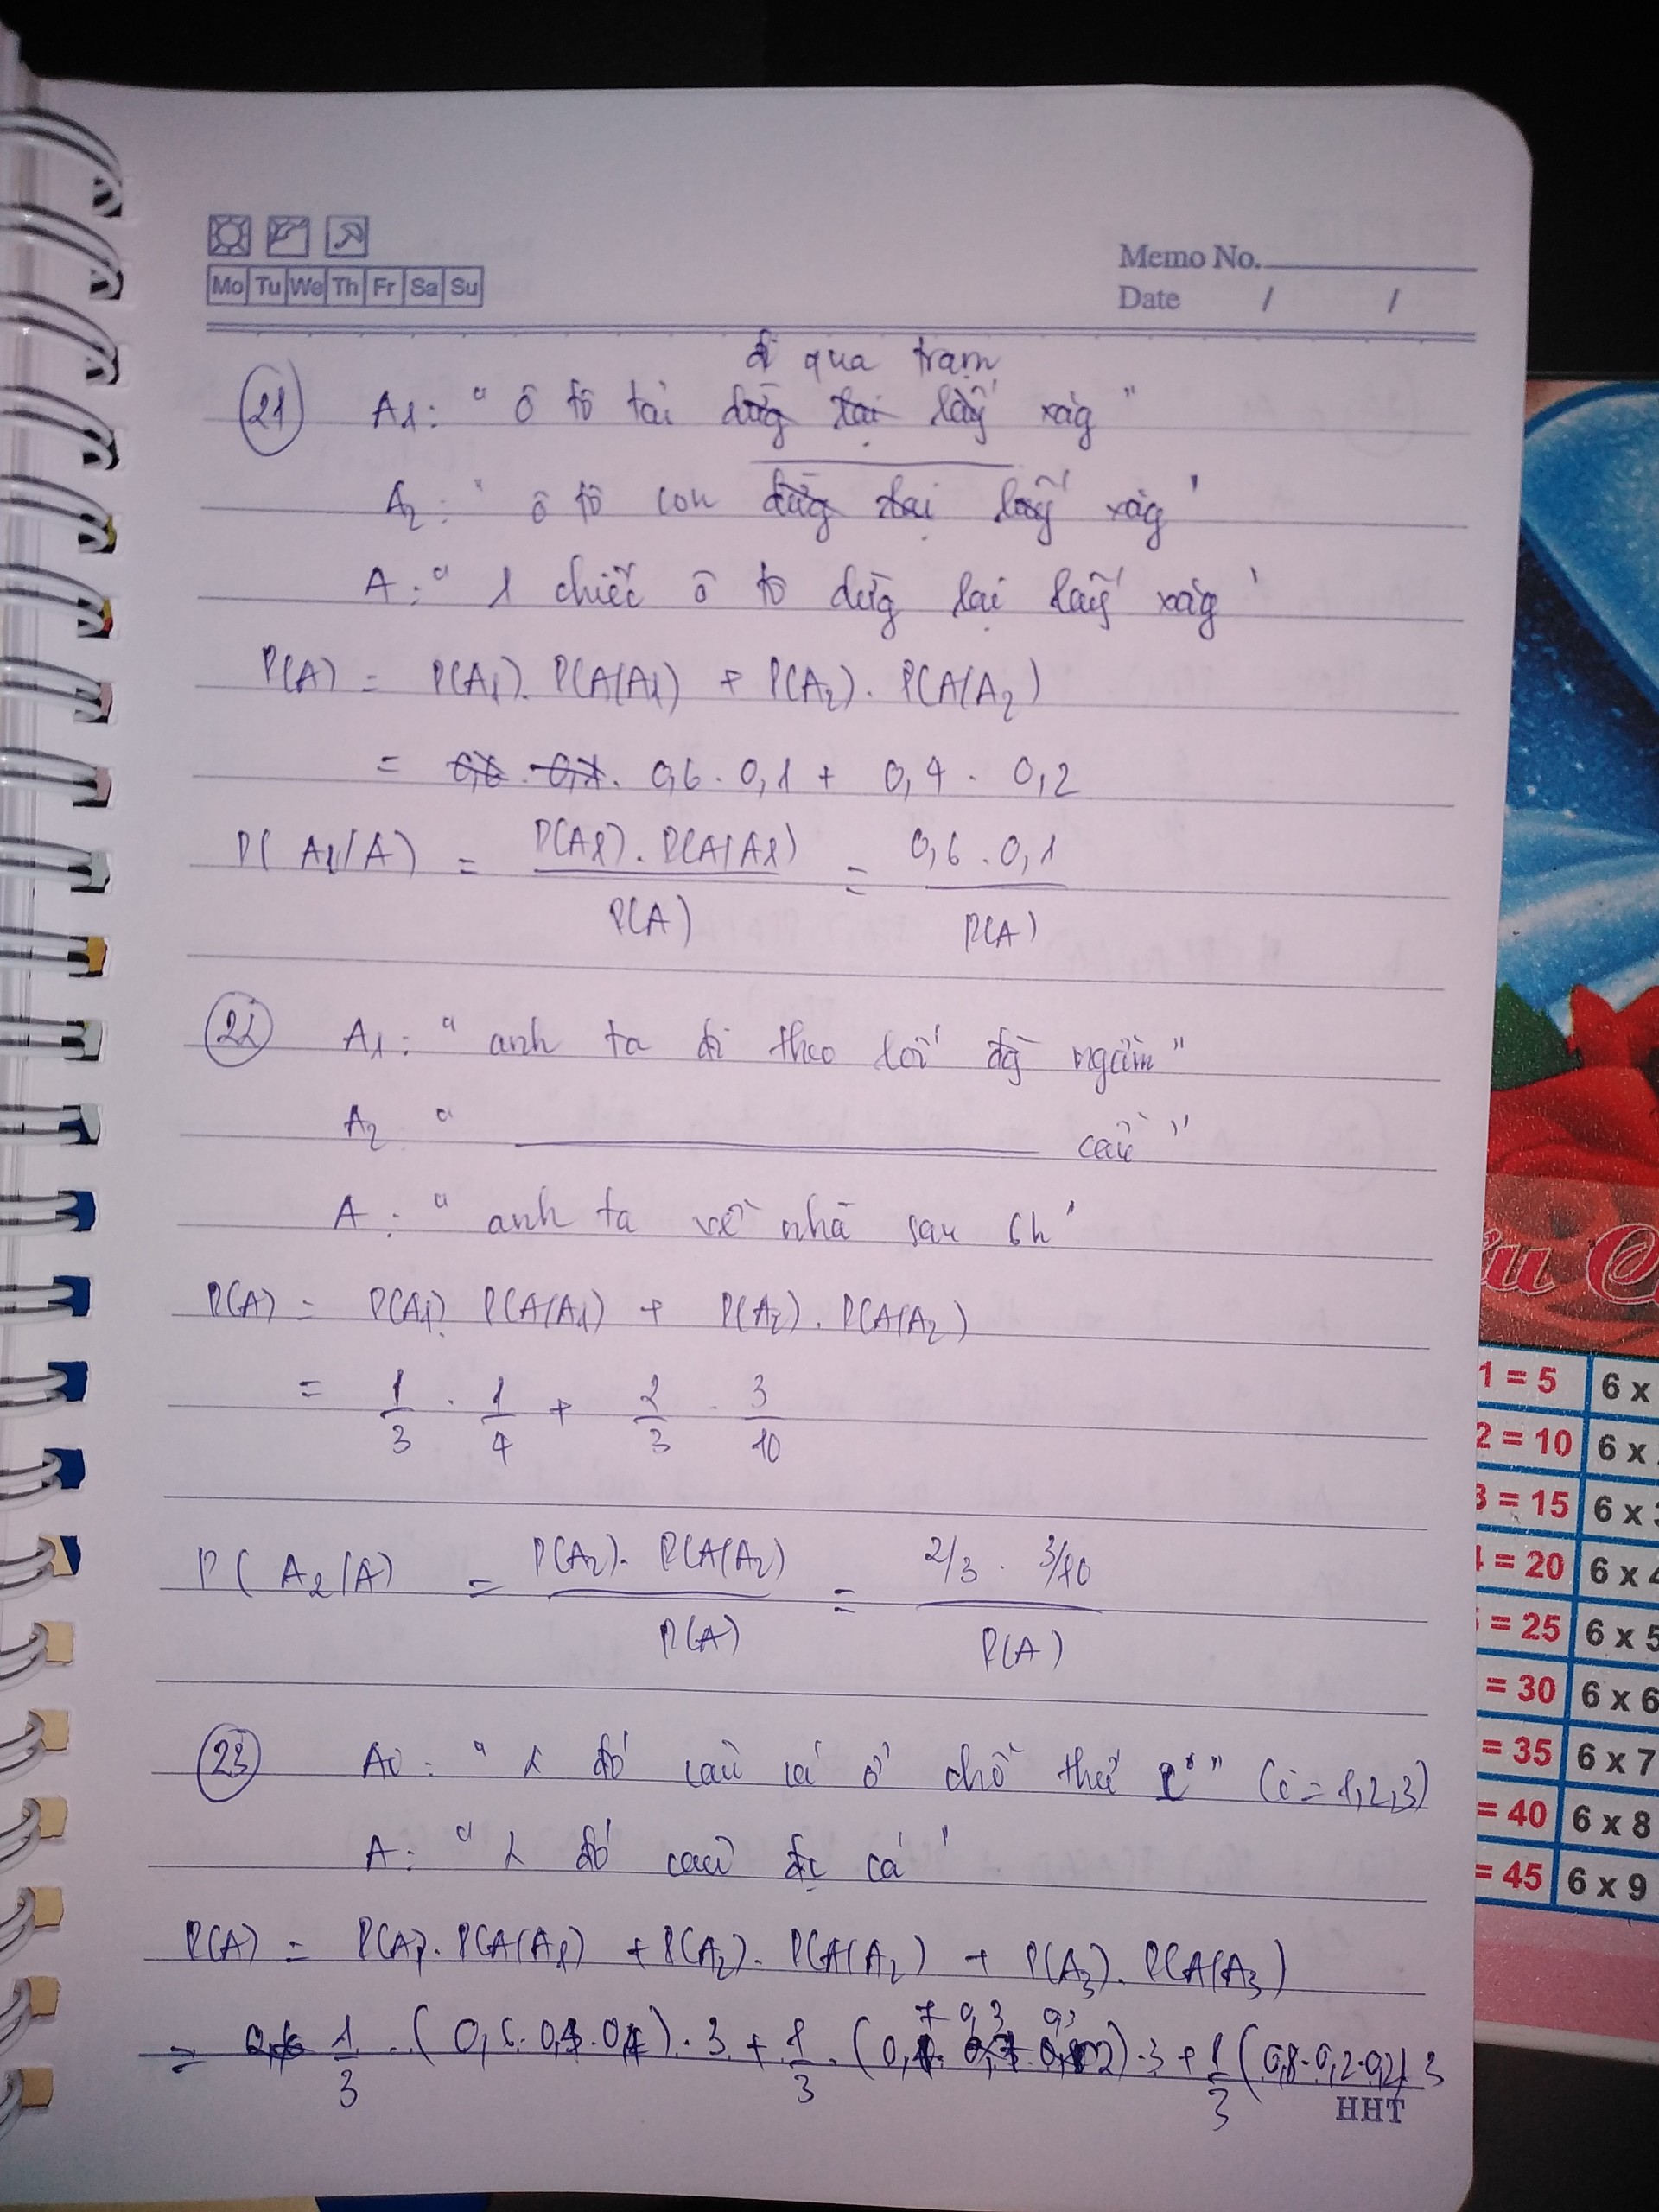 Mo Tu We Th Fr Sa Su
Memo No.
Date / /
đi qua trạm
21 A1: " ô tô tải dừg lại lấy xăg "
A2: " ô tô con dừg lại lấy xăg "
A: " 1 chiếc ô tô dừg lại lấy xăg "
P(A) = P(A1). P(A/A1) + P(A2). P(A/A2)
= 0,6 . 0,1 . 0,6 . 0,1 + 0,4 . 0,2
P(A1/A) = P(A1). P(A/A1) / P(A) = 0,6 . 0,1 / P(A)
22 A1: " anh ta đi theo lối đg ngầm "
A2: " ——— cầu "
A: " anh ta về nhà sau 6h "
P(A) = P(A1). P(A/A1) + P(A2). P(A/A2)
= 1/3 . 1/4 + 2/3 . 3/10
P(A2/A) = P(A2). P(A/A2) / P(A) = 2/3 . 3/10 / P(A)
23 Ai: " đó câu cá ở chỗ thứ i " (i = 1,2,3)
A: " đó câu đc cá "
P(A) = P(A1). P(A/A1) + P(A2). P(A/A2) + P(A3). P(A/A3)
= 1/3 . (0,6 . 0,4 . 0,4) . 3 + 1/3 . (0,7 0,3 0,3) . 3 + 1/3 (0,8 . 0,2 . 0,2) . 3
HHT
1 = 5 6 x
2 = 10 6 x
3 = 15 6 x
= 20 6 x
= 25 6 x 5
= 30 6 x 6
= 35 6 x 7
= 40 6 x 8
= 45 6 x 9